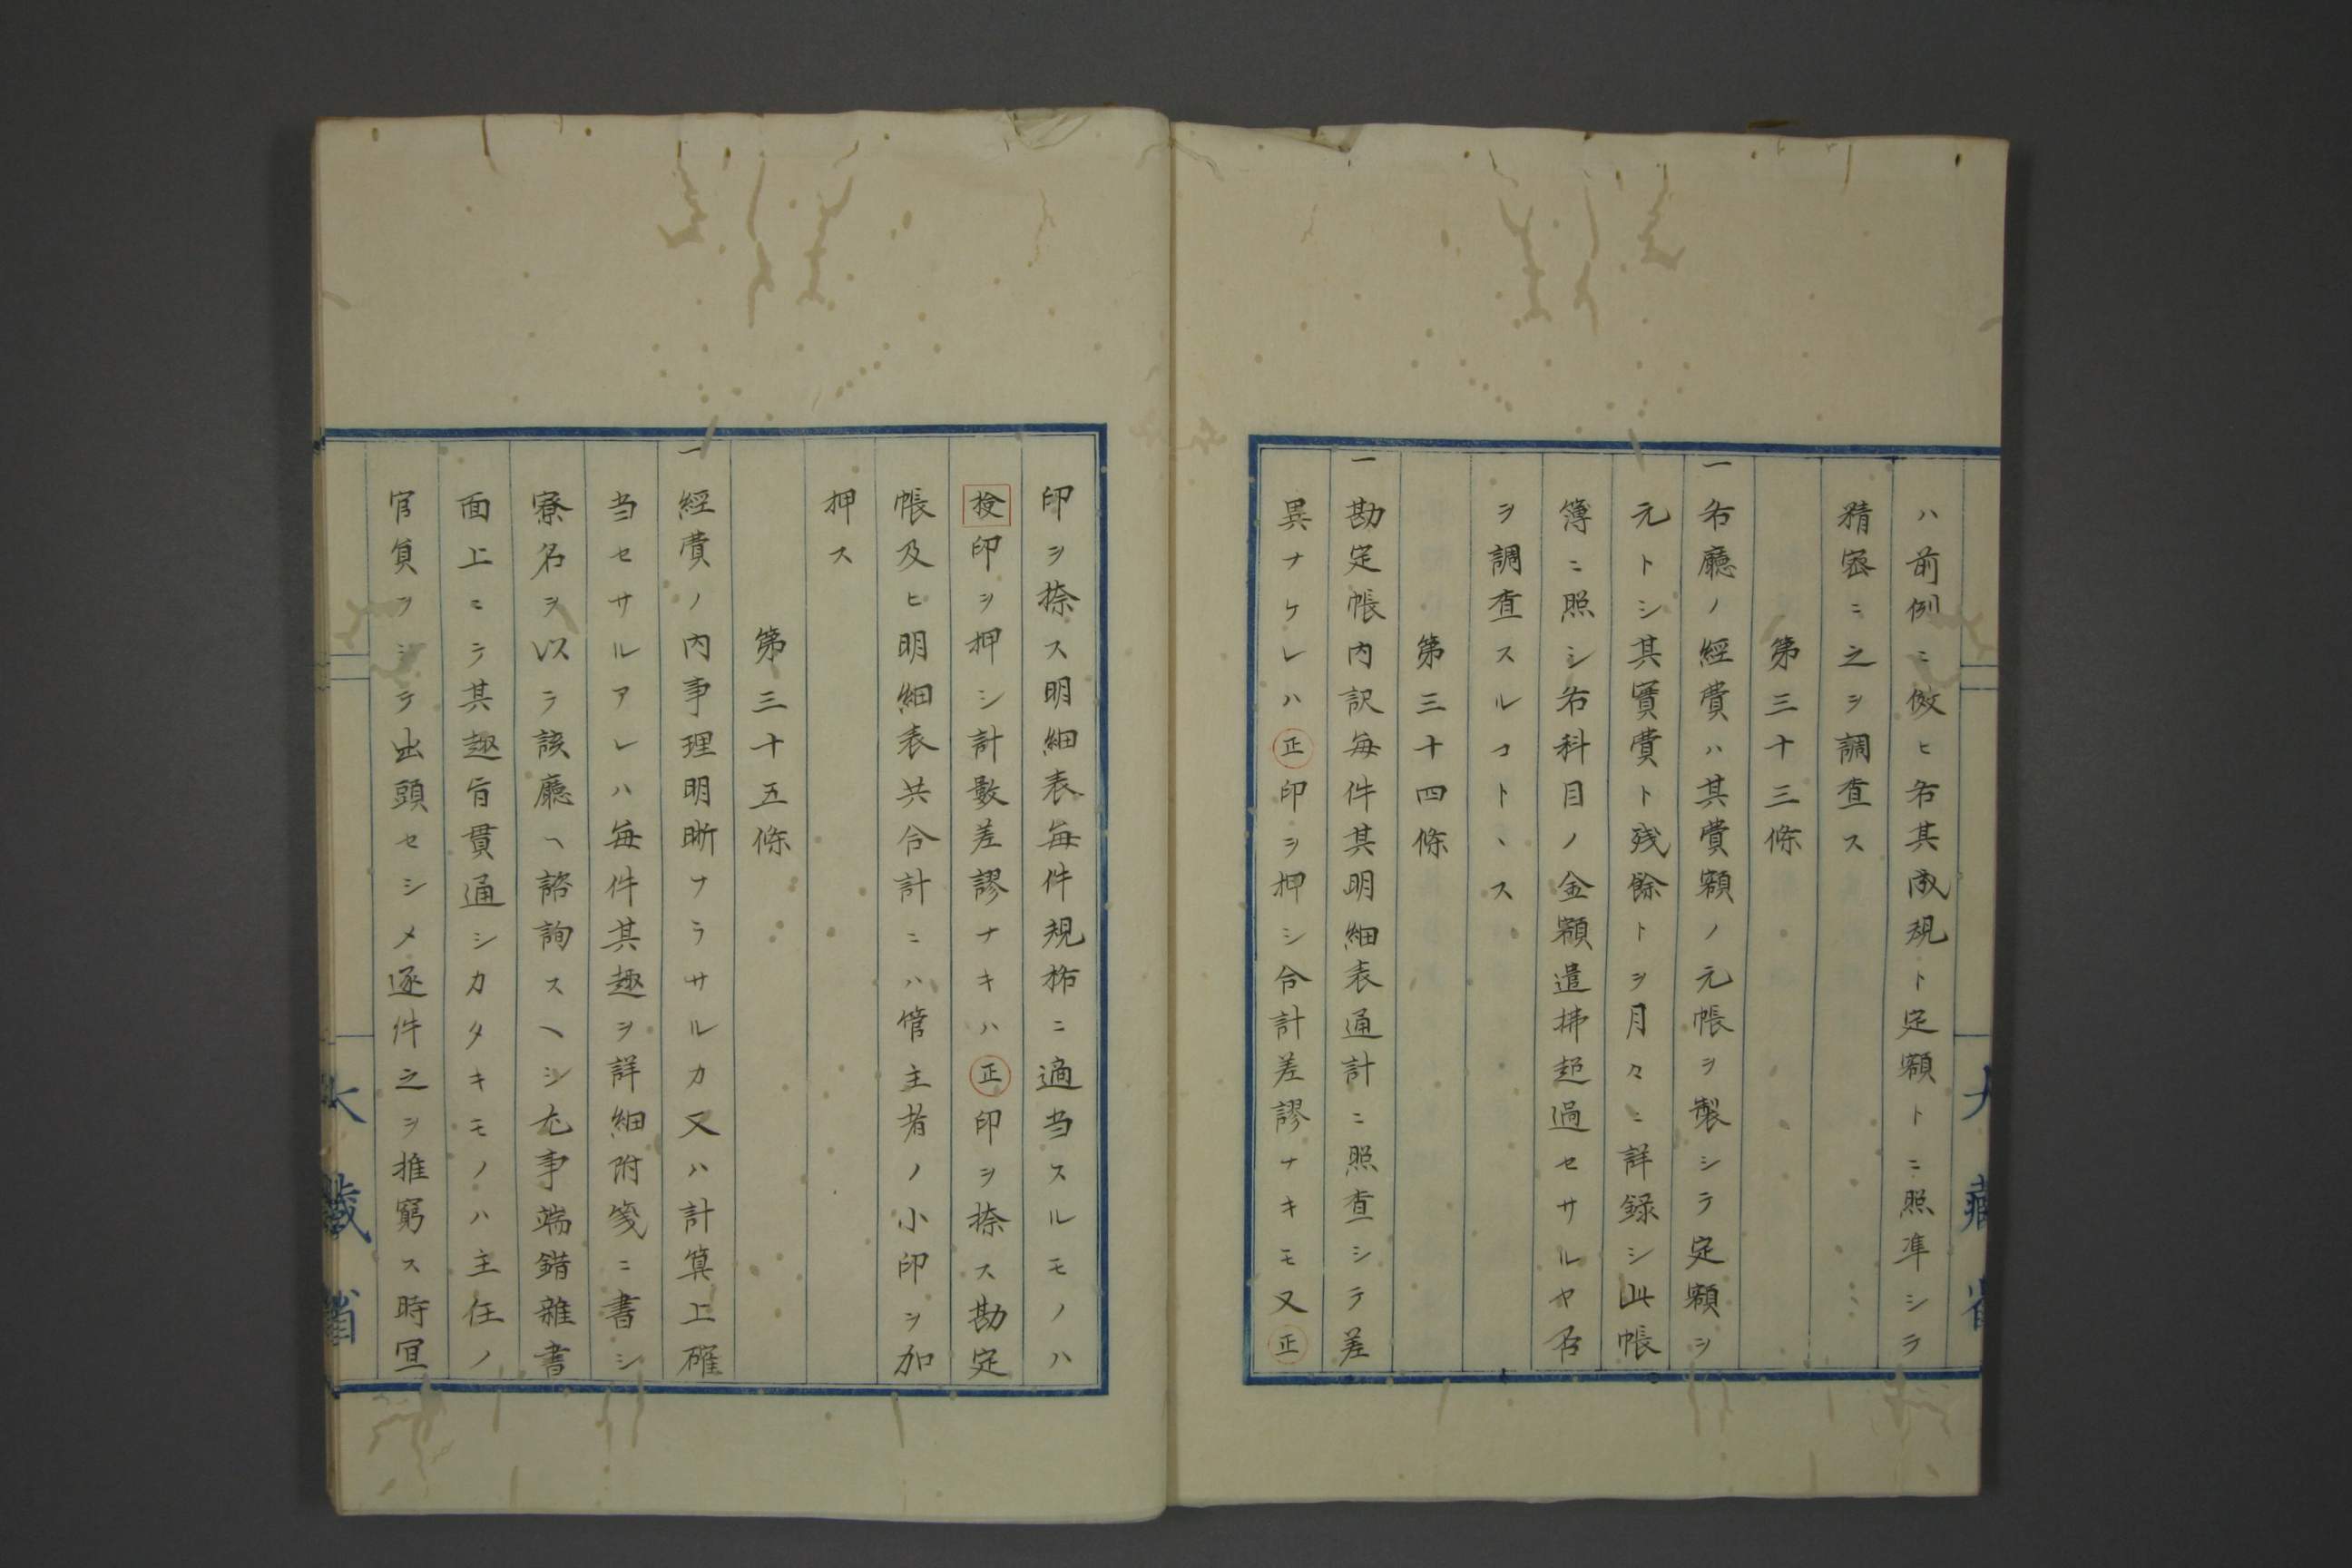 ハ前例ニ傚ヒ各其成規ト定額トニ照準シテ
精密ニ之ヲ調査ス
第三十三條
一各廳ノ經費ハ其費額ノ元帳ヲ製シテ定額ヲ
元トシ其實費ト残餘トヲ月々ニ詳録シ此帳
簿ニ照シ各科目ノ金額遣拂超過セサルヤ否
ヲ調査スルコトヽス
第三十四條
一勘定帳内訳毎件其明細表通計ニ照査シテ差
異ナケレハ正印ヲ押シ合計差謬ナキモ又正
大藏省
印ヲ捺ス明細表毎件規格ニ適当スルモノハ
検印ヲ押シ計數差謬ナキハ正印ヲ捺ス勘定
帳及ヒ明細表共合計ニハ管主者ノ小印ヲ加
押ス
第三十五條
一經費ノ内事理明晰ナラサルカ又ハ計算上確
当セサルアレハ毎件其趣ヲ詳細附箋ニ書シ
寮名ヲ以テ該廳ヘ諮詢スヘシ尤事端錯雜書
面上ニテ其趣旨貫通シカタキモノハ主任ノ
官員ヲシテ出頭セシメ逐件之ヲ推窮ス時宜
大藏省